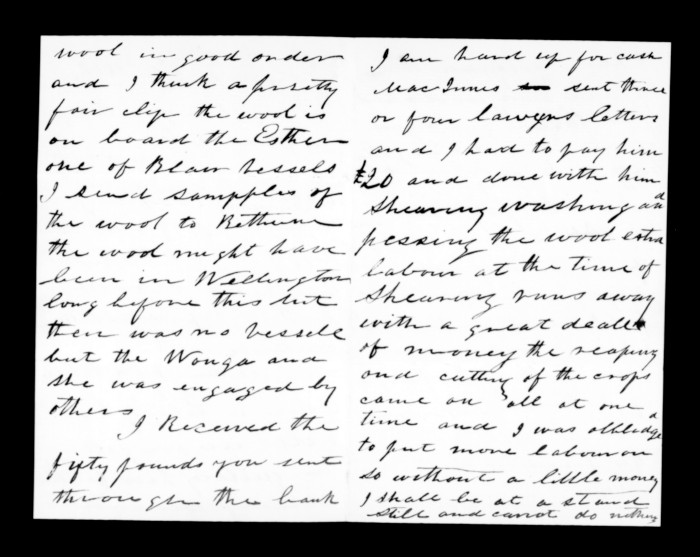 wool in good order
and I think a pretty
fair clip the wool is
on board the Esther
one of Blair vessels
I send sampples of
the wool to Bethune
the wool might have
been in Wellington
long before this but
their was no vessele
but the Wonga and
she was engaged by
others
I Received the
fifty pounds you sent
through the bank
I am hard up for cash
MacInnes sent three
or four lawyers letters
and I had to pay him
£20 and done with him
Shearing washing and
pessing the wool extra
labour at the time of
Shearing runs away
with a great deall
of money the reaping
and cutting of the crops
came on all at one
time and I was obbledge
to put more labour on
so without a little money
I shall be at a stand
still and cannot do nothing